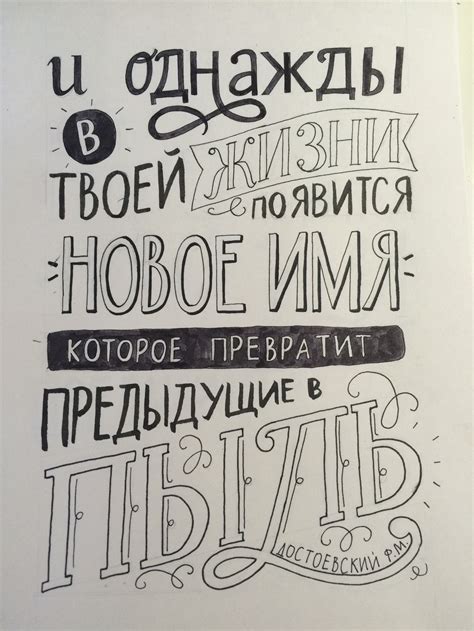 и однажды
в
твоей жизни
появится
новое имя
которое превратит
предыдущие в
пыль
Достоевский Ф.М.